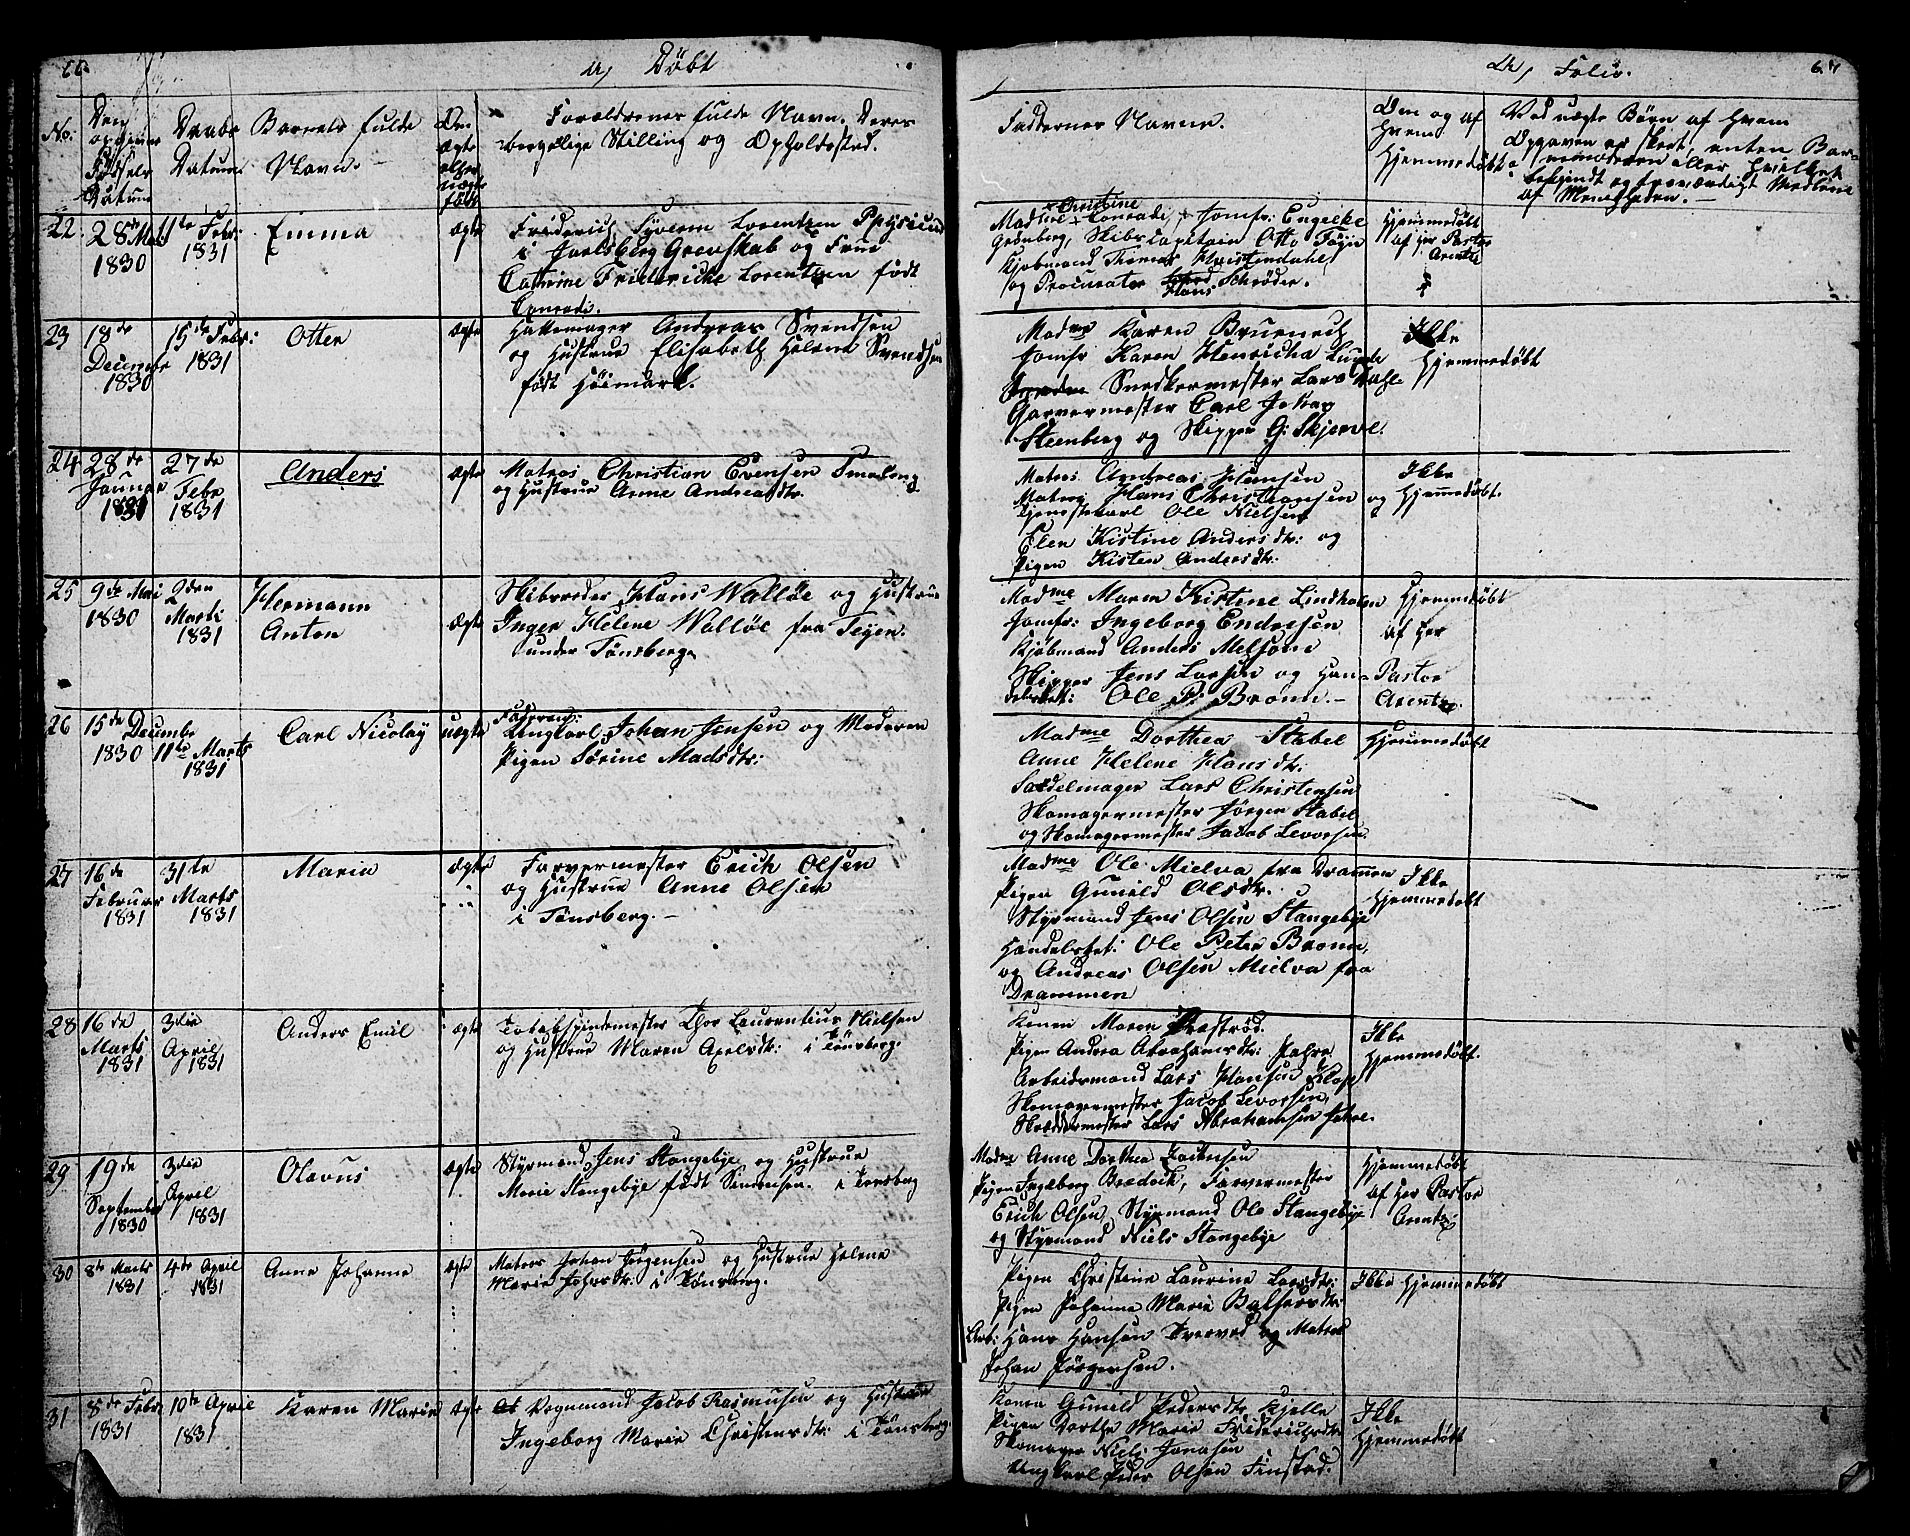 66.
a, Døbt
No:
Den opgivne Fødsels Datum
Daabs Datum.
Barnets fulde Navn.
Om ægte eller uægte født
Forældrenes fulde Navn. Deres
borgelige Stilling og Opholdssted.
22.
28de Mai 1830
11te Febr. 1831
Emma
ægte
Friderich Lorentzen Physicus
i Jarlsberg Grevskab og Frue
Cathrine Friedericke Lorentzen født
Conradi.
23
18de December 1830
15de Febr: 1831
Otter
ægte
Andreas Svendsen
og Hustrue Elisabeth Helene Svendsen
født Høimark.
24
28de Januar 1831
27de Febr 1831
Anders
ægte
Matros Christian Evensen
og Hustrue Anne Andreasdtr.
25
9de Mai 1830
2den Marti 1831
Hermann
Anton
ægte
Skibsreder Hans Walløe og Hustrue
Inger Helene Walløe fra Teyen
under Tønsberg.
26
15de Decembr 1830
11te Marts 1831
Carl Nicolay
uægte
Faderen:
Ungkarl Johan Jensen og Moderen
Pigen Sørine Madsdtr:
27
16de Februar 1831
31te Marts 1831
Maria
ægte
Farvermester Erich Olsen
og Hustrue Anne Olsen
i Tønsberg.
28
16de Marts 1831
3die April 1831
Anders Emil
ægte
Tobakspindemester Thor Laurentius Nielsen
og Hustrue Maren Axelsdtr: i Tønsberg.
29
19de September 1830
3die April 1831
Olavus
ægte
Styrmand Jens Stangebye og Hustrue
Marie Stangebye født Simensen. i Tønsberg
30
8de Marts 1831
4de April 1831
Anne Johanne
ægte
Matros Johan Jørgensen og Hustrue Helene
Marie Johnsdtr. i Tønsberg.
31
8de Febr. 1831
10de April 1831
Karen Marie
ægte
Vognmand Jacob Rasmusen og Hustrue
Ingeborg Marie Christensdtr: i Tønsberg.
Folio.
67
Faddernes Navne.
Om og af
hvem
Hjemmedøbt
Ved uægte Børn af hvem
Opgaven er skeet, enten Bar-
nemoderen eller hvilket
bekjendt og troværdigt Medlem
af Menigheden.
Christine
Madme Conradi, Jomfr: Engelke
Grønberg, Skibscapitain Otto Føyn
Kjøbmand Thomas Kristendahl
og Procurator Hans Schrøder.
Hjemmedøbt
af Her Pastor
Arentz
Madme Karen Bruenech
Jomfr Karen Henricha Lunde
Snedkermester Lars Dahl
Garvermester Carl Johan
Steenberg og Skipper G: Skjerve.
Ikke
Hjemmedøbt
Matros Andreas Hansen
Matros Hans Christiansen og
Tjenestekarl Ole Nielsen
Elen Kistine Andersdtr: og
Pigen Kisten Andersdtr:
Ikke
Hjemmedøbt.
Madme Maren Kistine Lindholm
Jomfr: Ingeborg Endresen
Kjøbmand Anders Melsom
Skipper Jens Larsen og Han-
delsbet: Ole P. Bromn.
Hjemmedøbt
af Her
Pastor
Arentz.
Madme Dorthea Stabel
Anne Helene Hansdtr.
Sadelmager Lars Christensen
Skomagermester Jørgen Stabel
og Skomagermester Jacob Levorsen
Hjemmedøbt
Madme Ole Mielva fra Drammen
Pigen Gunild Olsdtr.
Styrmand Jens Olsen Stangebye
Handelsbet: Ole Peter Bromn,
og Andreas Olsen Mielva fra
Drammen
Ikke
Hjemmedøbt
Konen Maren
Pigen Andrea Abrahamsdtr: Jahre
Arbeidsmand Lars Hansen
Skomagermester Jacob Levorsen,
Skræddermester Lars Abrahamsen Jahre.
Ikke
Hjemmedøbt.
Madme Anne Dorthea
Pigen Ingeborg Bredvik, Farvermester
Erich Olsen, Styrmand Ole Stangebye
og Styrmand Niels Stangebye
Hjemmedøbt
af Her Pastor
Arentz
Pigen Christine Laurine Larsdtr:
Pigen Johanne Marie Baltersdtr:
Arb: Hans Hansen og Matros
Johan Jørgensen.
Ikke Hjemmedøbt
Konen Gunild Pedersdtr Kjelle
Pigen Dorthe Marie Friderichsdtr
Skomager Niels Jonasen
Ungkarl Peder Olsen Finstad.
Ikke
Hjemmedøbt